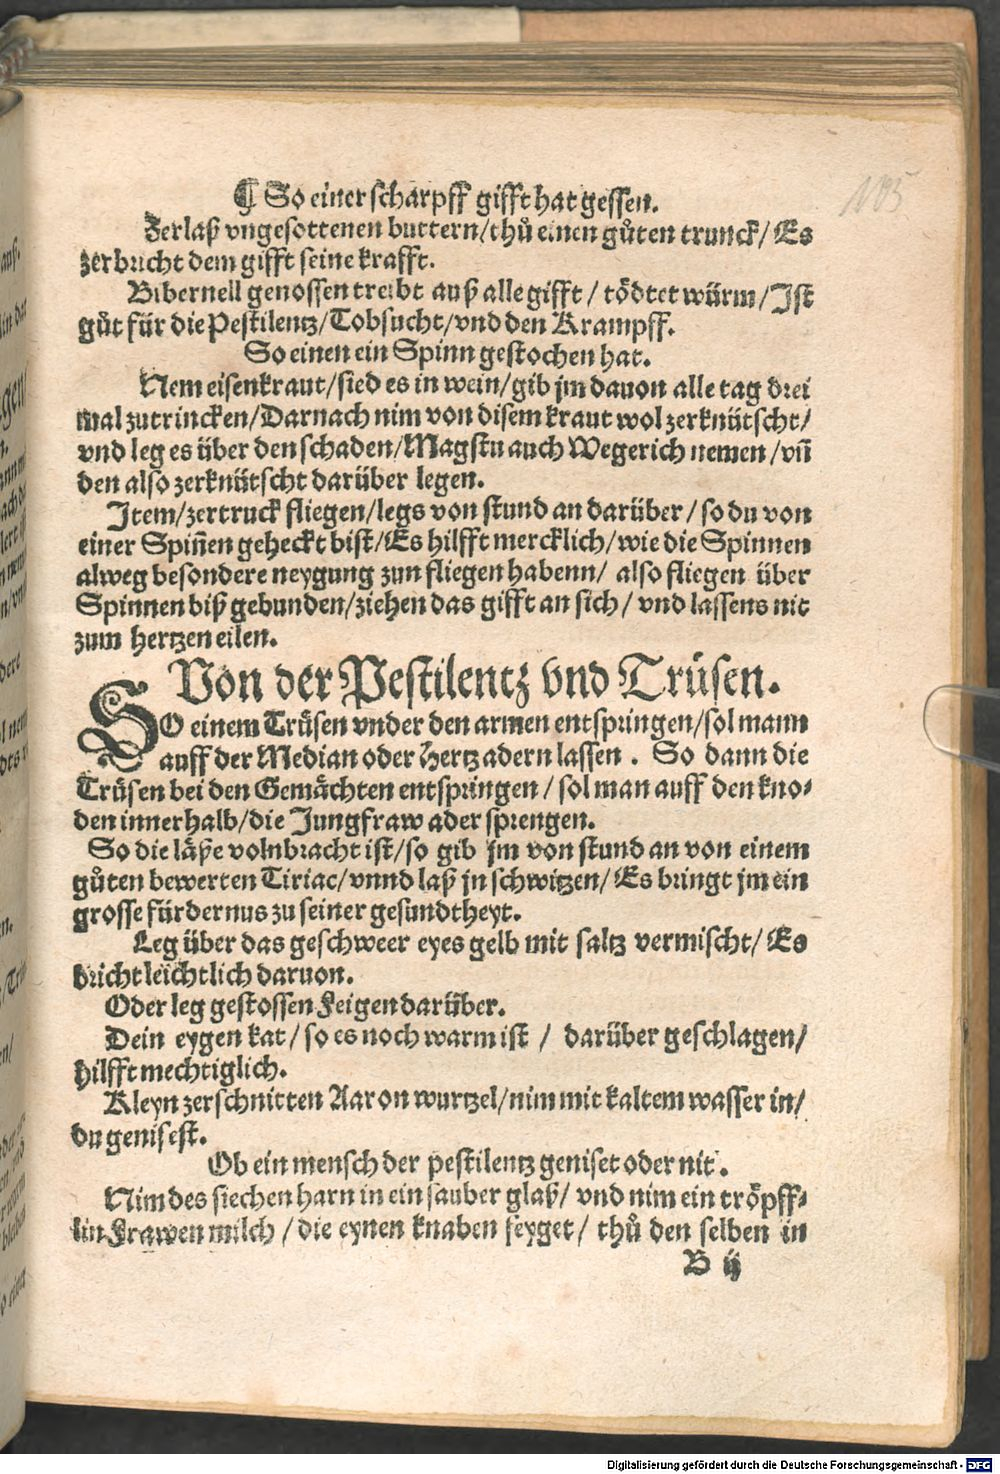 ¶ So einer scharpff gifft hat gessen.
Zerlaß vngesottenen buttern/thů einen gůten trunck/Es
zerbricht dem gifft seine krafft.
Bibernell genossen treibt auß alle gifft/ tödtet würm/Ist
gůt für die Pestilentz/Tobsucht/vnd den Krampff.
So einen ein Spinn gestochen hat.
Nem eisenkraut/sied es in wein/gib jm dauon alle tag drei
mal zutrincken/Darnach nim von disem kraut wol zerknütscht/
vnd leg es über den schaden/Magstu auch Wegerich nemen/vñ
den also zerknütscht darüber legen.
Item/zertruck fliegen/legs von stund an darüber/so du von
einer Spiñen geheckt bist/Es hilfft mercklich/wie die Spinnen
alweg besondere neygung zun fliegen habenn/ also fliegen über
Spinnen biß gebunden/ziehen das gifft an sich/ vnd lassens nit
zum hertzen eilen.
Von der Pestilentz vnd Trüsen.
SO einem Trüsen vnder den armen entspringen/sol mann
auff der Median oder Hertz adern lassen. So dann die
Trüsen bei den Gemächten entspringen/ sol man auff den kno-
den innerhalb/die Jungfraw ader sprengen.
So die läße volnbracht ist/so gib jm von stund an von einem
gůten bewerten Tiriac/vnnd laß jn schwitzen/Es bringt jm ein
grosse fürdernus zu seiner gesundtheyt.
Leg über das geschweer eyes gelb mit saltz vermischt/Es
bricht leichtlich daruon.
Oder leg gestossen Feigen darüber.
Dein eygen kat/so es noch warm ist / darüber geschlagen/
hilfft mechtiglich.
Kleyn zerschnitten Aaron wurtzel/nim mit kaltem wasser in/
du genisest.
Ob ein mensch der pestilentz geniset oder nit.
Nim des siechen harn in ein sauber glaß/ vnd nim ein tröpff-
lin Frawen milch/die eynen knaben seyget/ thů den selben in
B ij
105
Digitalisierung gefördert durch die Deutsche Forschungsgemeinschaft - DFG